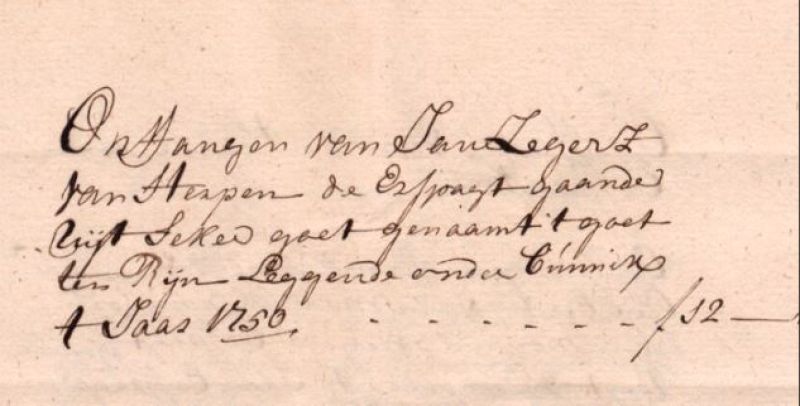 Ontfangen van Jan Zegerz
van Herpen de Erfpagt gaande
uijt Seker goet genaamt 't goet
ten Rijn Leggende onder Cúnnick
t Jaar 1750. - - - - - - - f 12 —